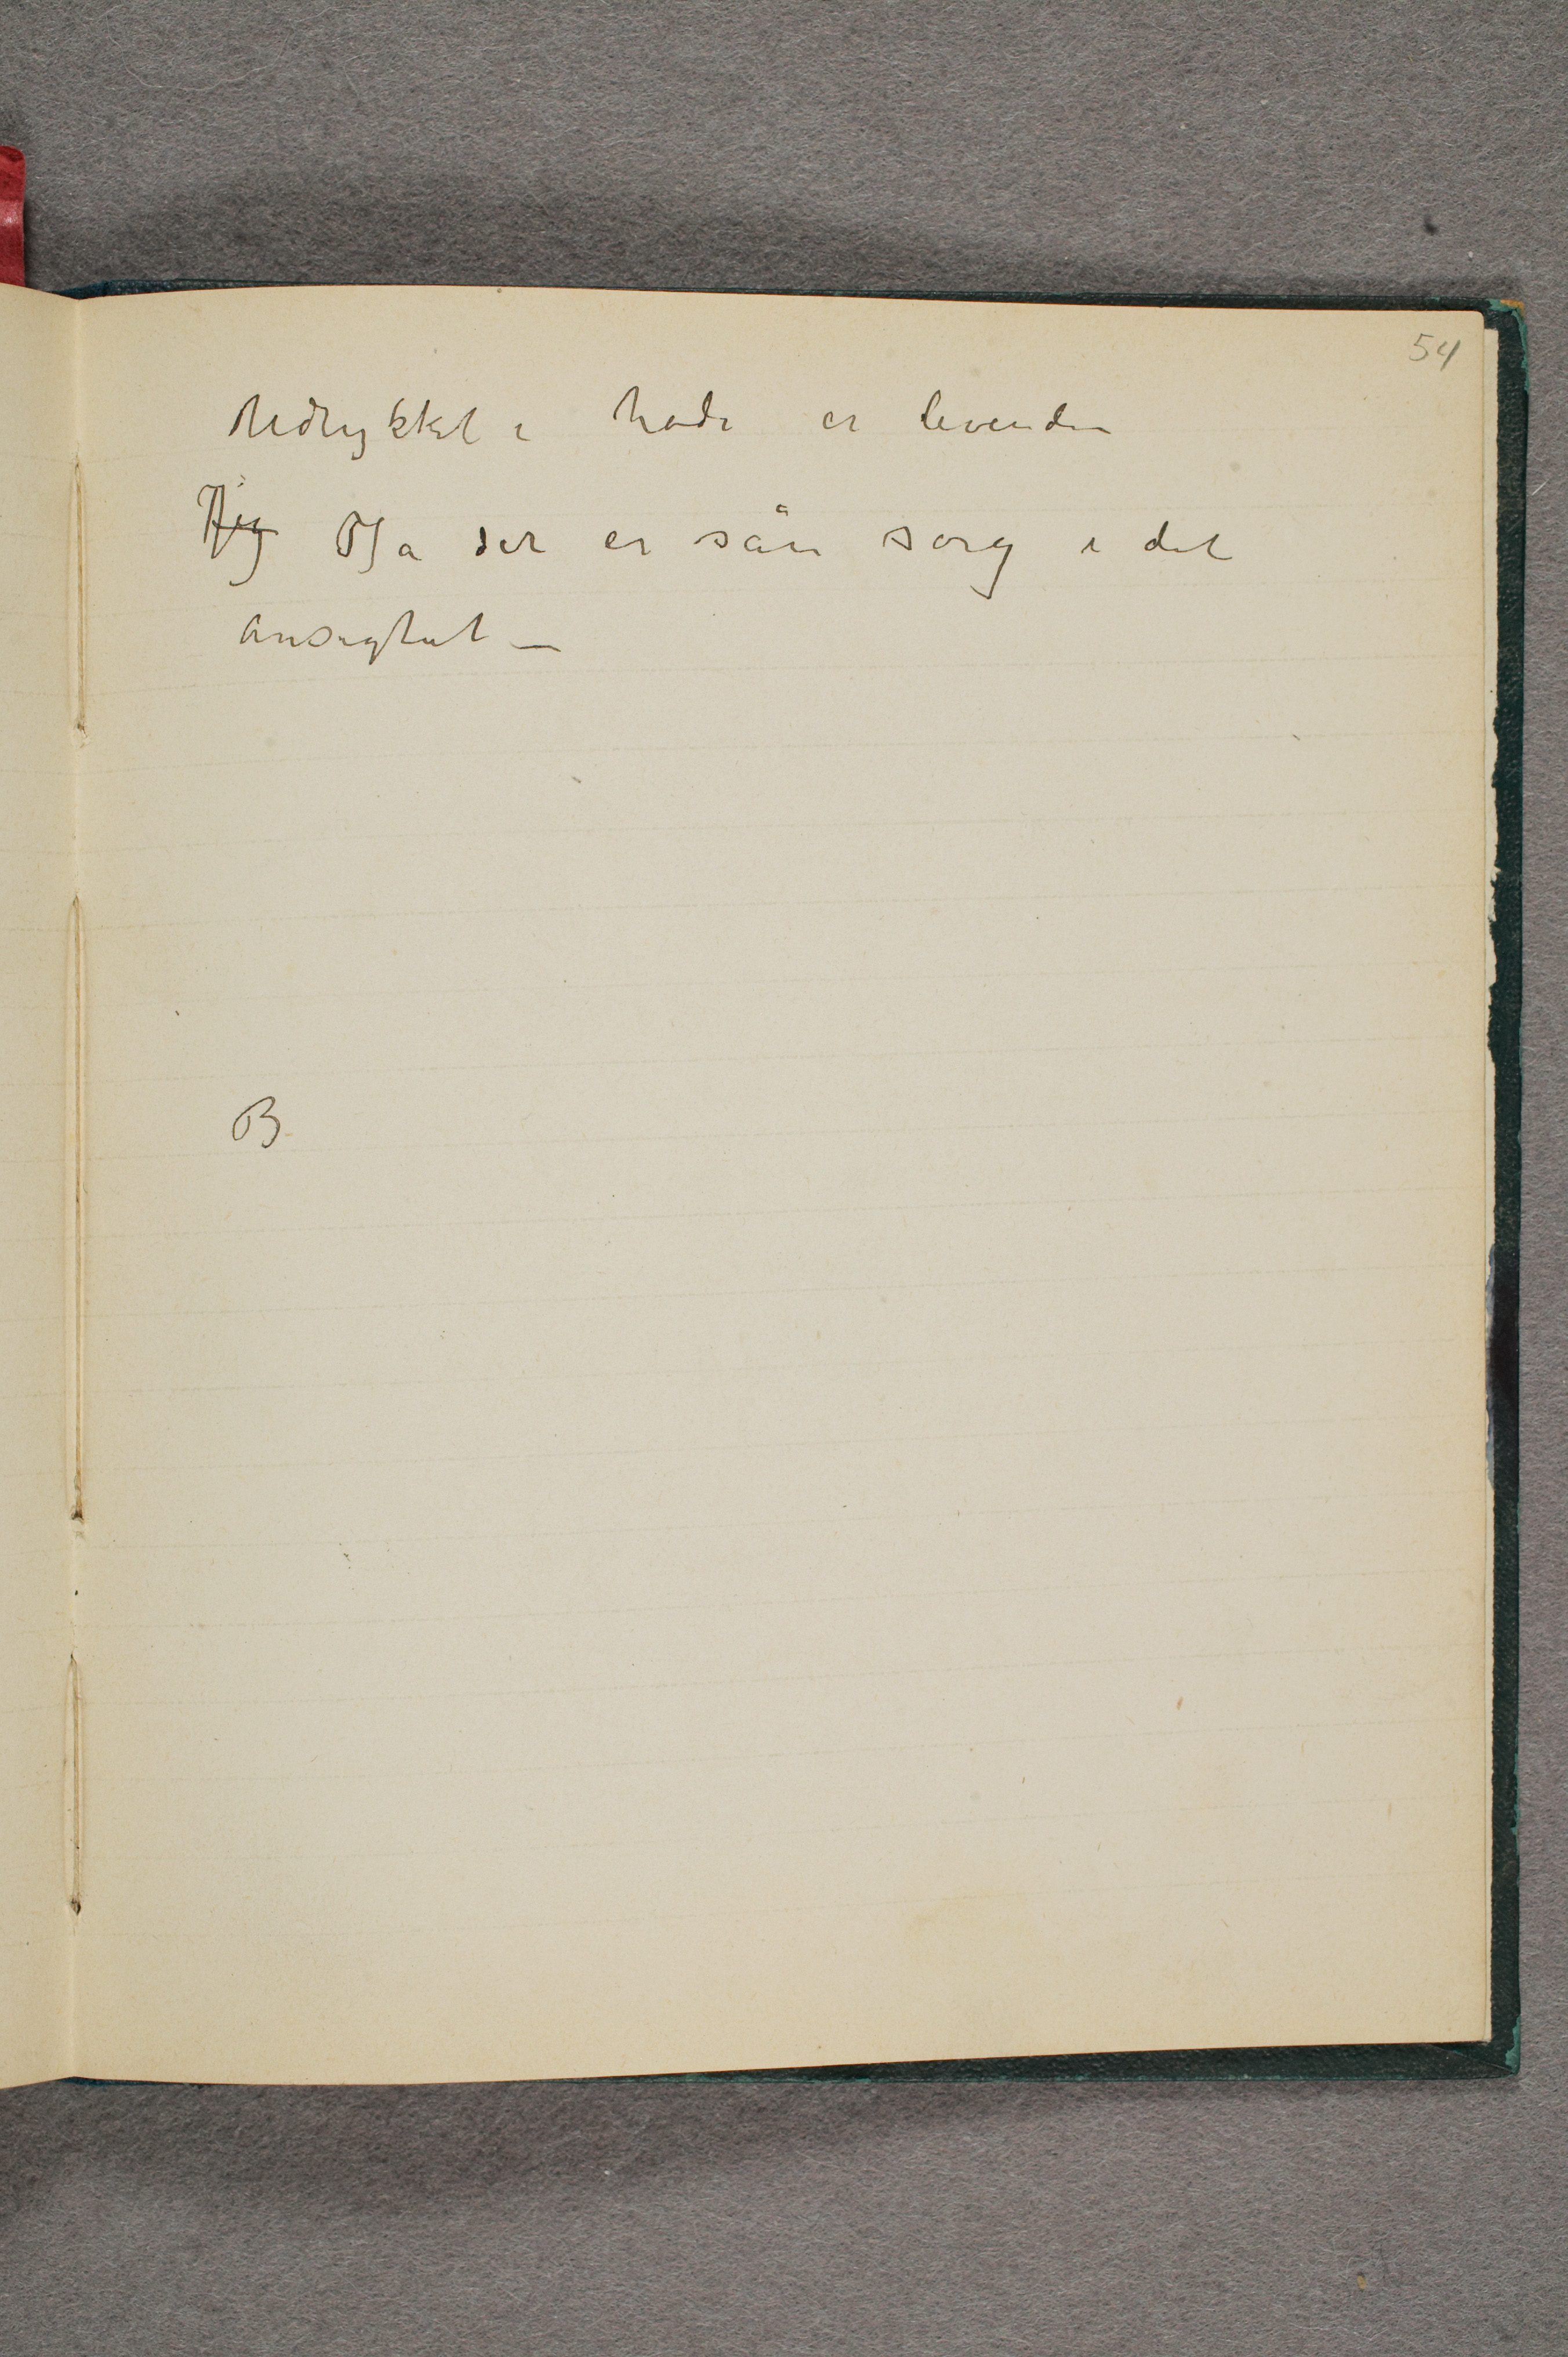 54
Udtrykket i hode er levende
Jeg Ja der er sån sorg i det
ansigtet –
B